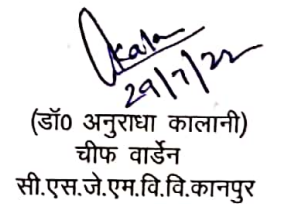 Akalani
29/7/22
(डॉ0 अनुराधा कालानी)
चीफ वार्डेन
सी.एस.जे.एम.वि.वि.कानपुर